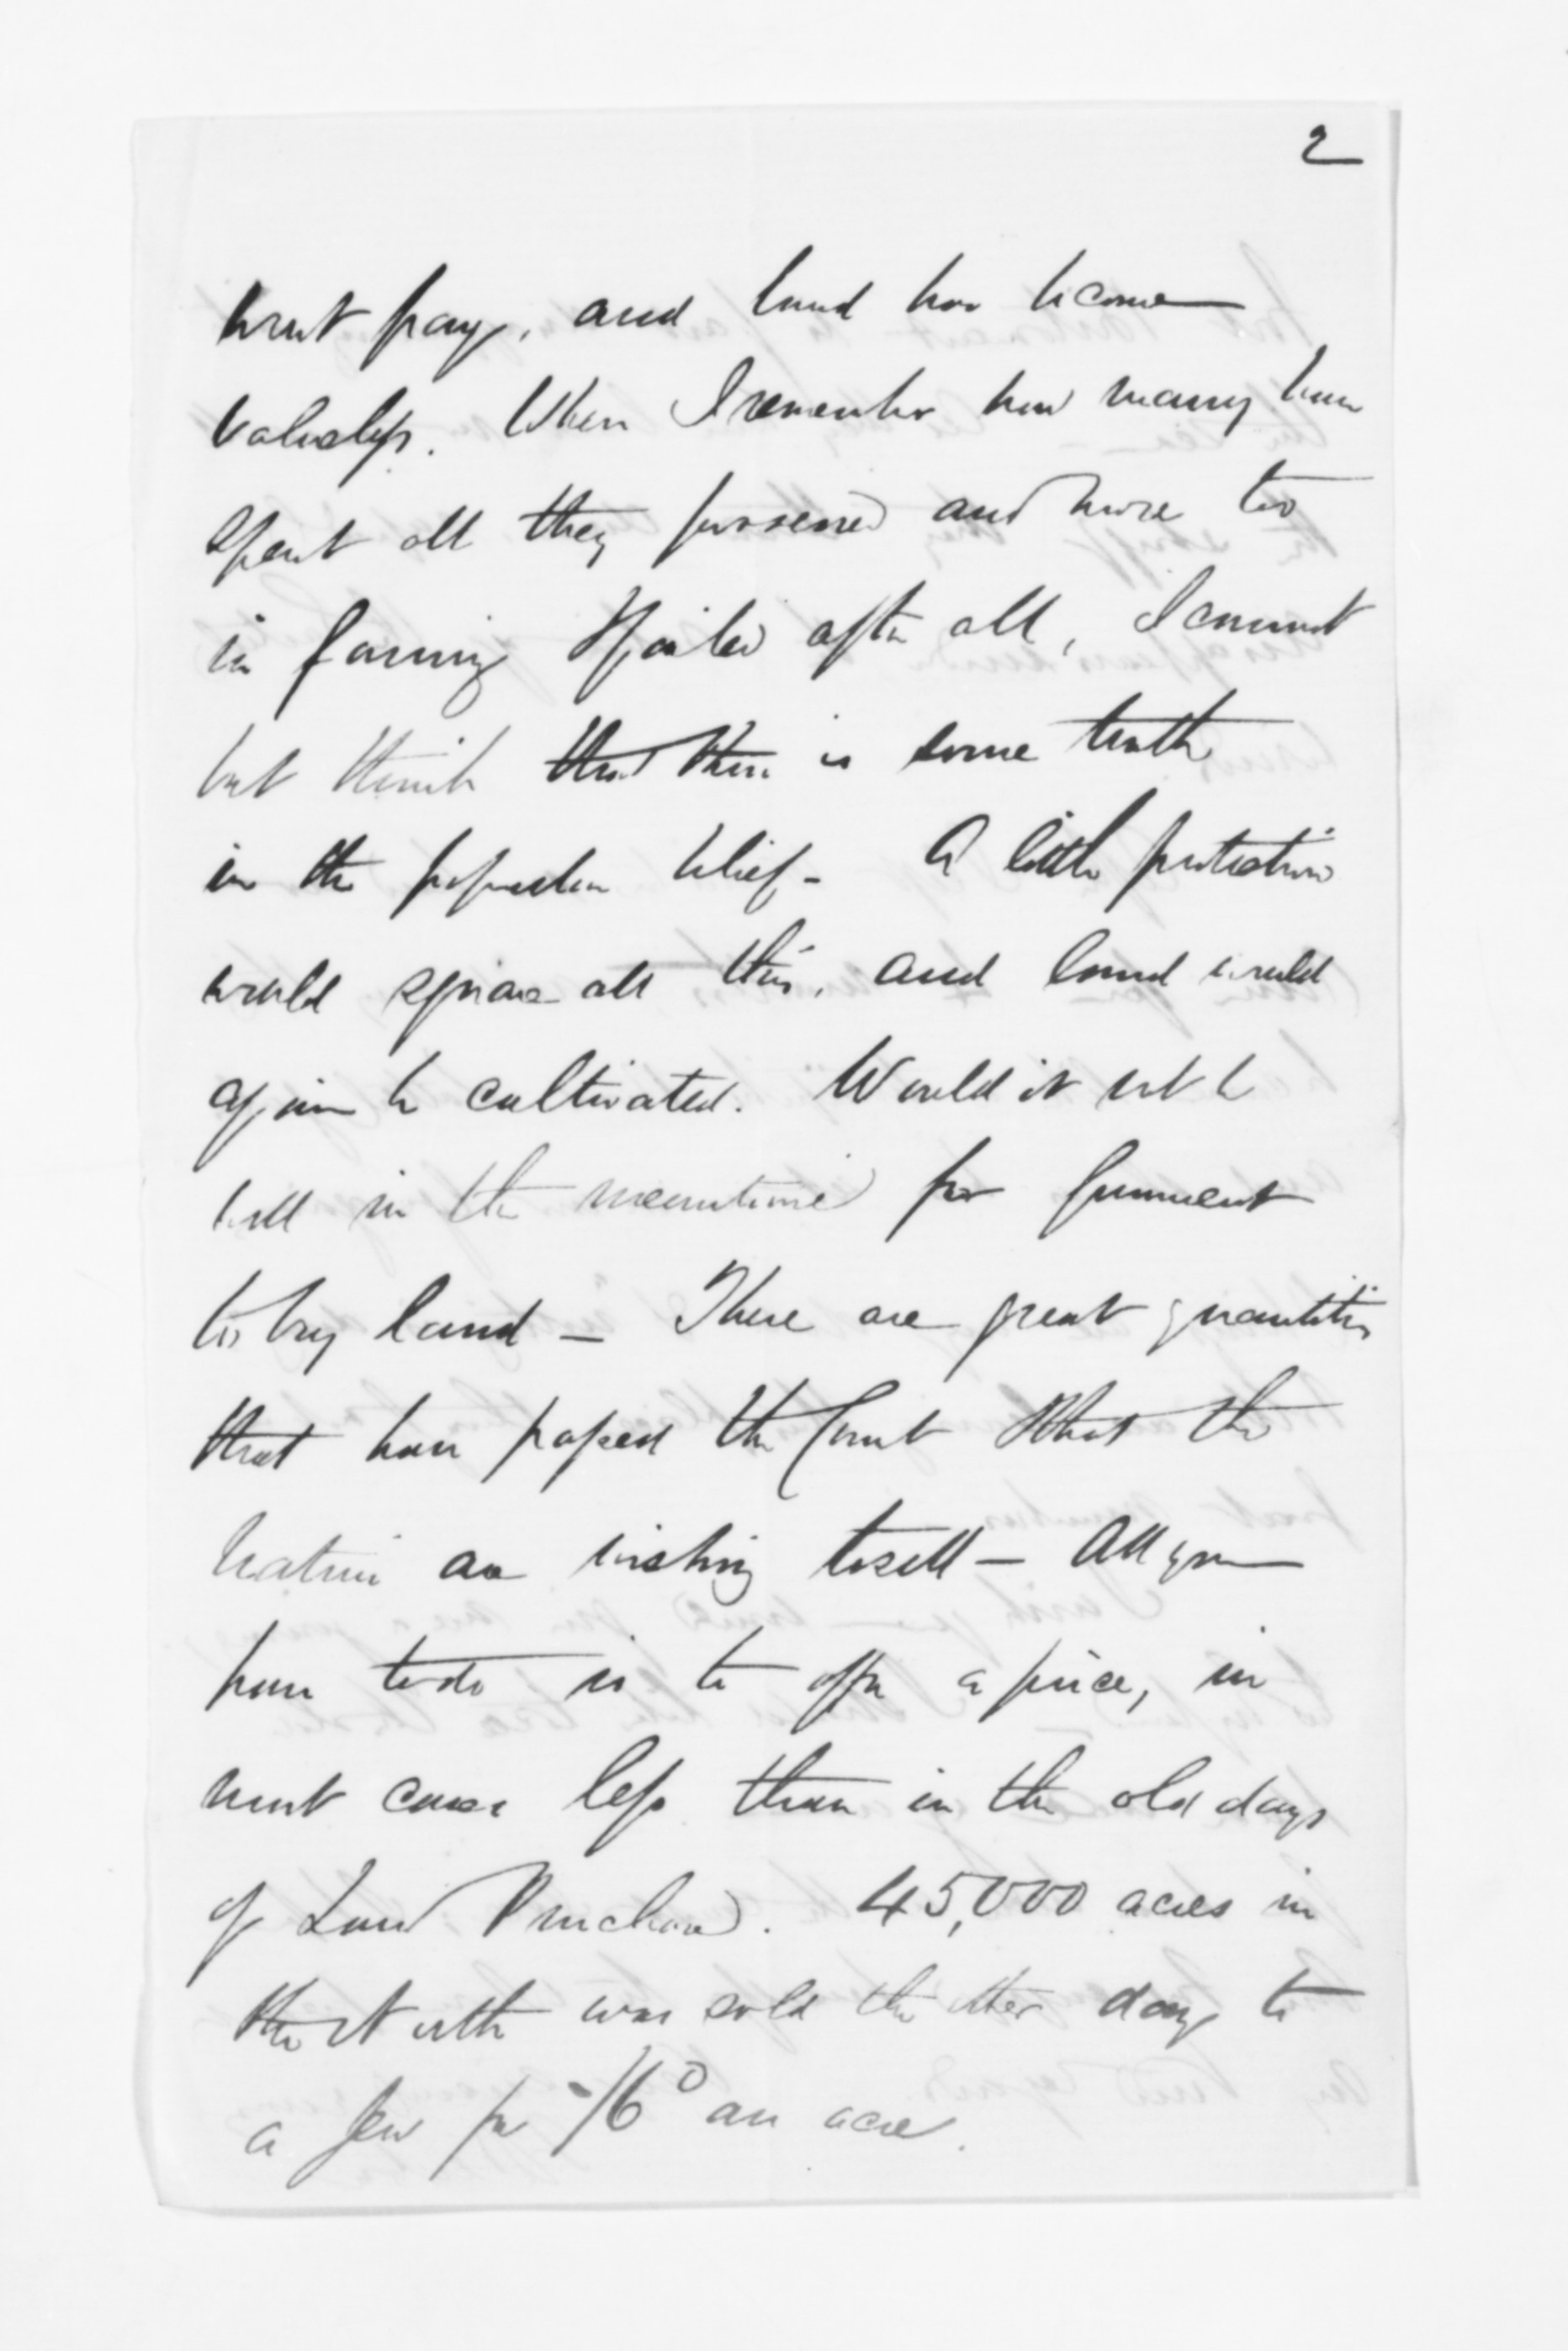 2
wont pay, and land has become
valueless. When I remember how many have
spent all they possessed and more too
in farming & failed after all, I cannot
but think that there is some truth
in the popular belief - A little protection
would square all this, and land would
again be cultivated. Would it not be
well in the meantime for Government
to buy land - There are great quantities
that have passed the Court & that the
natives are wishing to sell - All you
have to do is to offer a price, in
most cases less than in the old days
of Land Purchase. 45,000 acres in
the North was sold the other day to
a few for -/6D an acre.